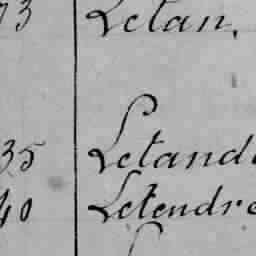 73 Letan,
35 Letand
40 Letendre